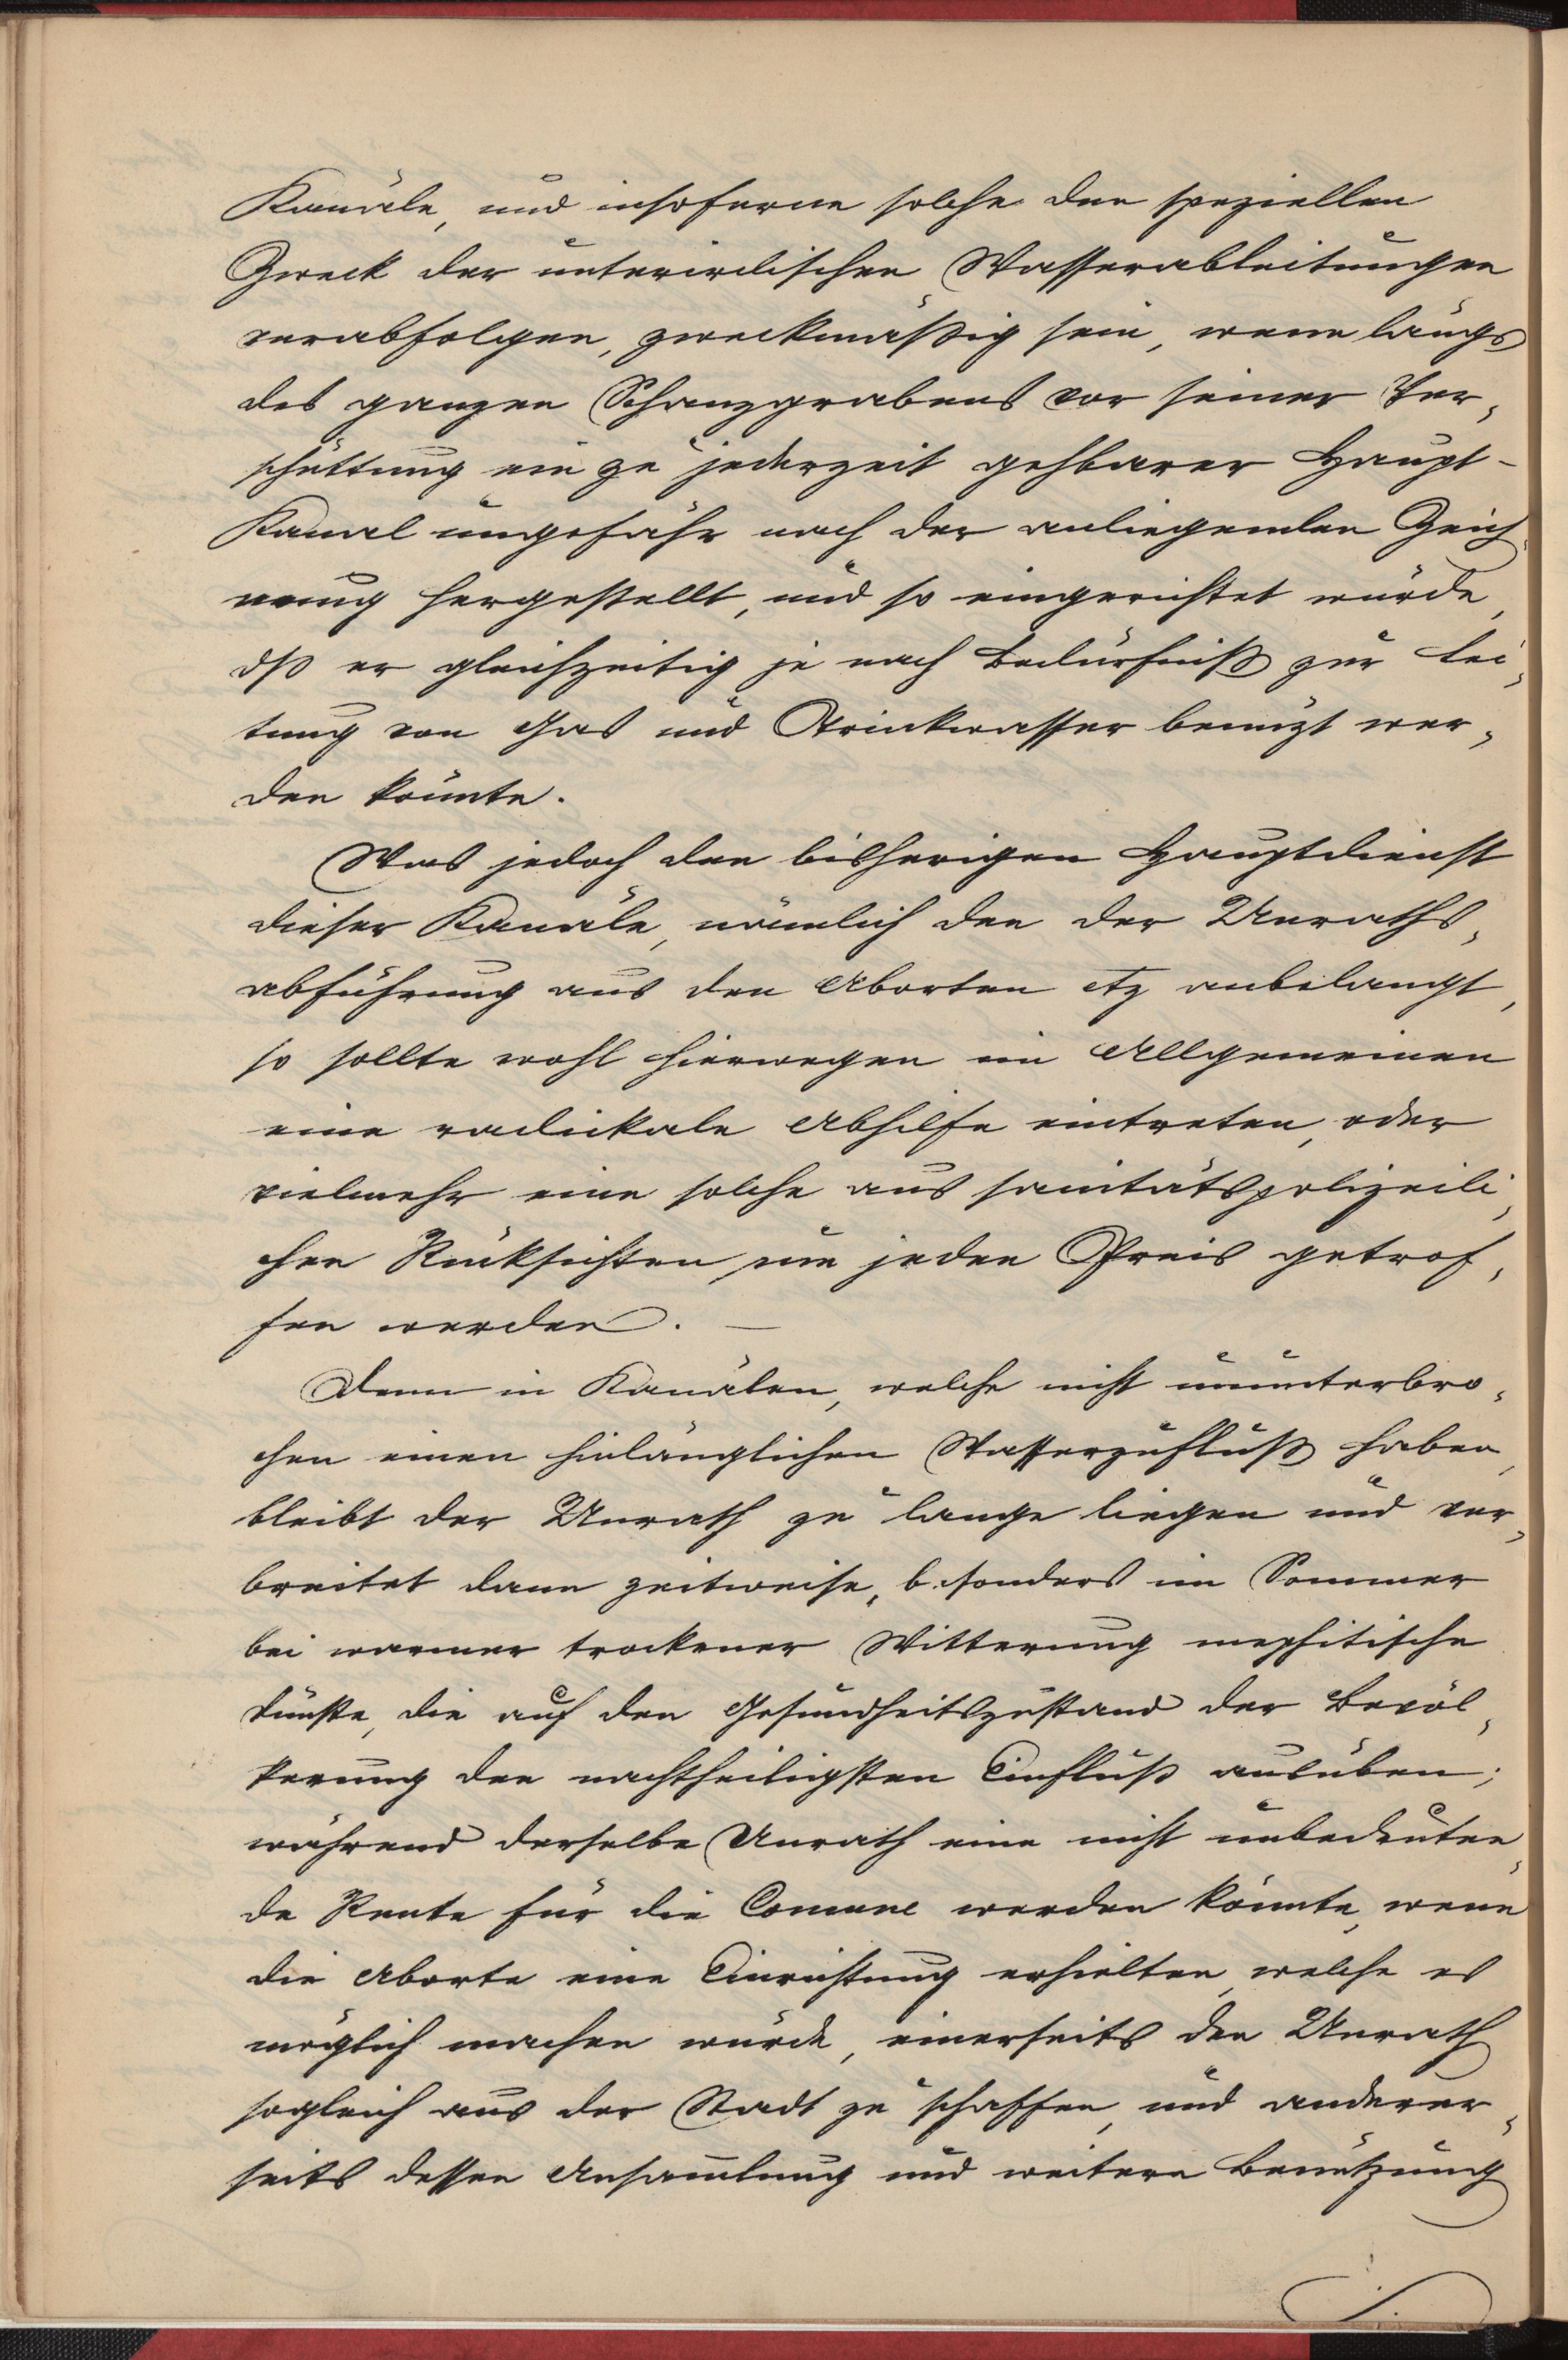 Kanäle, und insoferne solche den speziellen
Zweck der unterirdischen Wasserableitungen
verabfolgen, zweckmäßig sein, wenn längs
des ganzen Schanzgrabens vor seiner Ver„
schüttung ein zu jederzeit gehbarer Haupt-
Kanal ungefähr nach der anliegenden Zeich„
nung hergestellt, und so eingerichtet würde,
dß er gleichzeitig je nach Bedürfniß zur Lei„
tung von Gas und Trinkwasser benüzt wer„
den könnte.
Was jedoch den bisherigen Hauptdienst
dieser Kanäle, nämlich den der Unraths„
abführung aus den Aborten etz anbelangt,
so sollte wohl hierwegen im Allgemeinen
eine radickale Abhilfe eintreten, oder
vielmehr eine solche aus sanitätspolizeili„
chen Rücksichten um jeden Preis getrof„
fen werden. —
Denn in Kanälen, welche nicht ununterbro„
chen einen hinlänglichen Wasserzufluß haben,
bleibt der Unrath zu lange liegen und ver„
breitet dann zeitweise, besonders im Sommer
bei warmer trockener Witterung mephitische
Dünste, die auf den Gesundheitszustand der Bevöl„
kerung den nachtheiligsten Einfluß ausüben;
während derselbe Unrath eine nicht unbedeuten„
de Rente für die Comune werden könnte, wenn
die Aborte eine Einrichtung erhielten, welche es
möglich machen würde, einerseits den Unrath
sogleich aus der Stadt zu schaffen, und anderer„
seits dessen Ansamlung und weitere Benützung